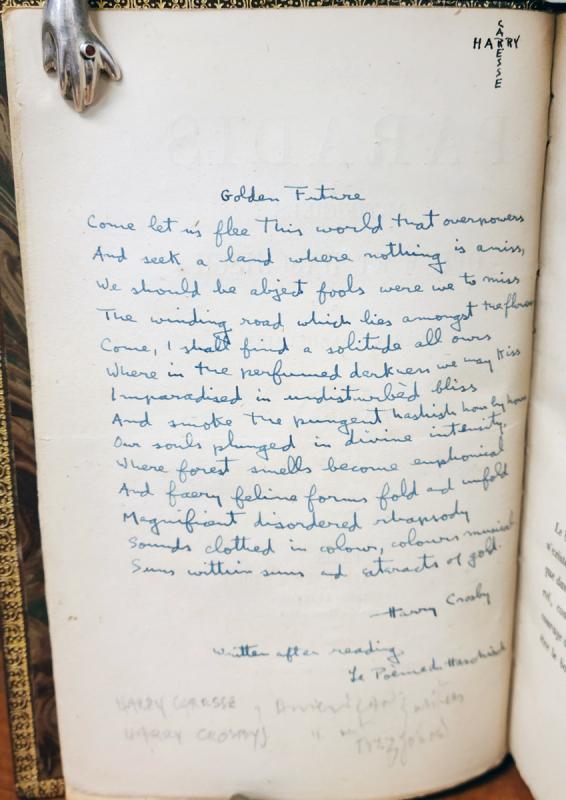 HARRY
CARESSE
Golden Future
Come let us flee this world that overpowers
And seek a land where nothing is amiss,
We should be abject fools were we to miss
The winding road which lies amongst the flowers
Come, I shall find a solitude all ours
Where in the perfumed darkness we may kiss
Imparadised in undisturbèd bliss
And smoke the pungent hashish hour by hour
Our souls plunged in divine intensity,
Where forest smells become euphonical
And faery feline forms fold and unfold
Magnificent disordered rhapsody
Sounds clothed in colour, colours musical
Suns within suns and cataracts of gold.
—Harry Crosby
written after reading
Le Poème du Haschisch
HARRY CARESSE
HARRY CROSBY
PARADIS